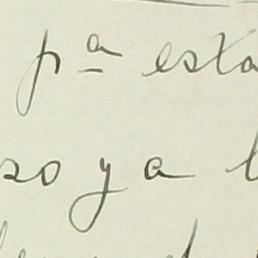 pª esta
so y a